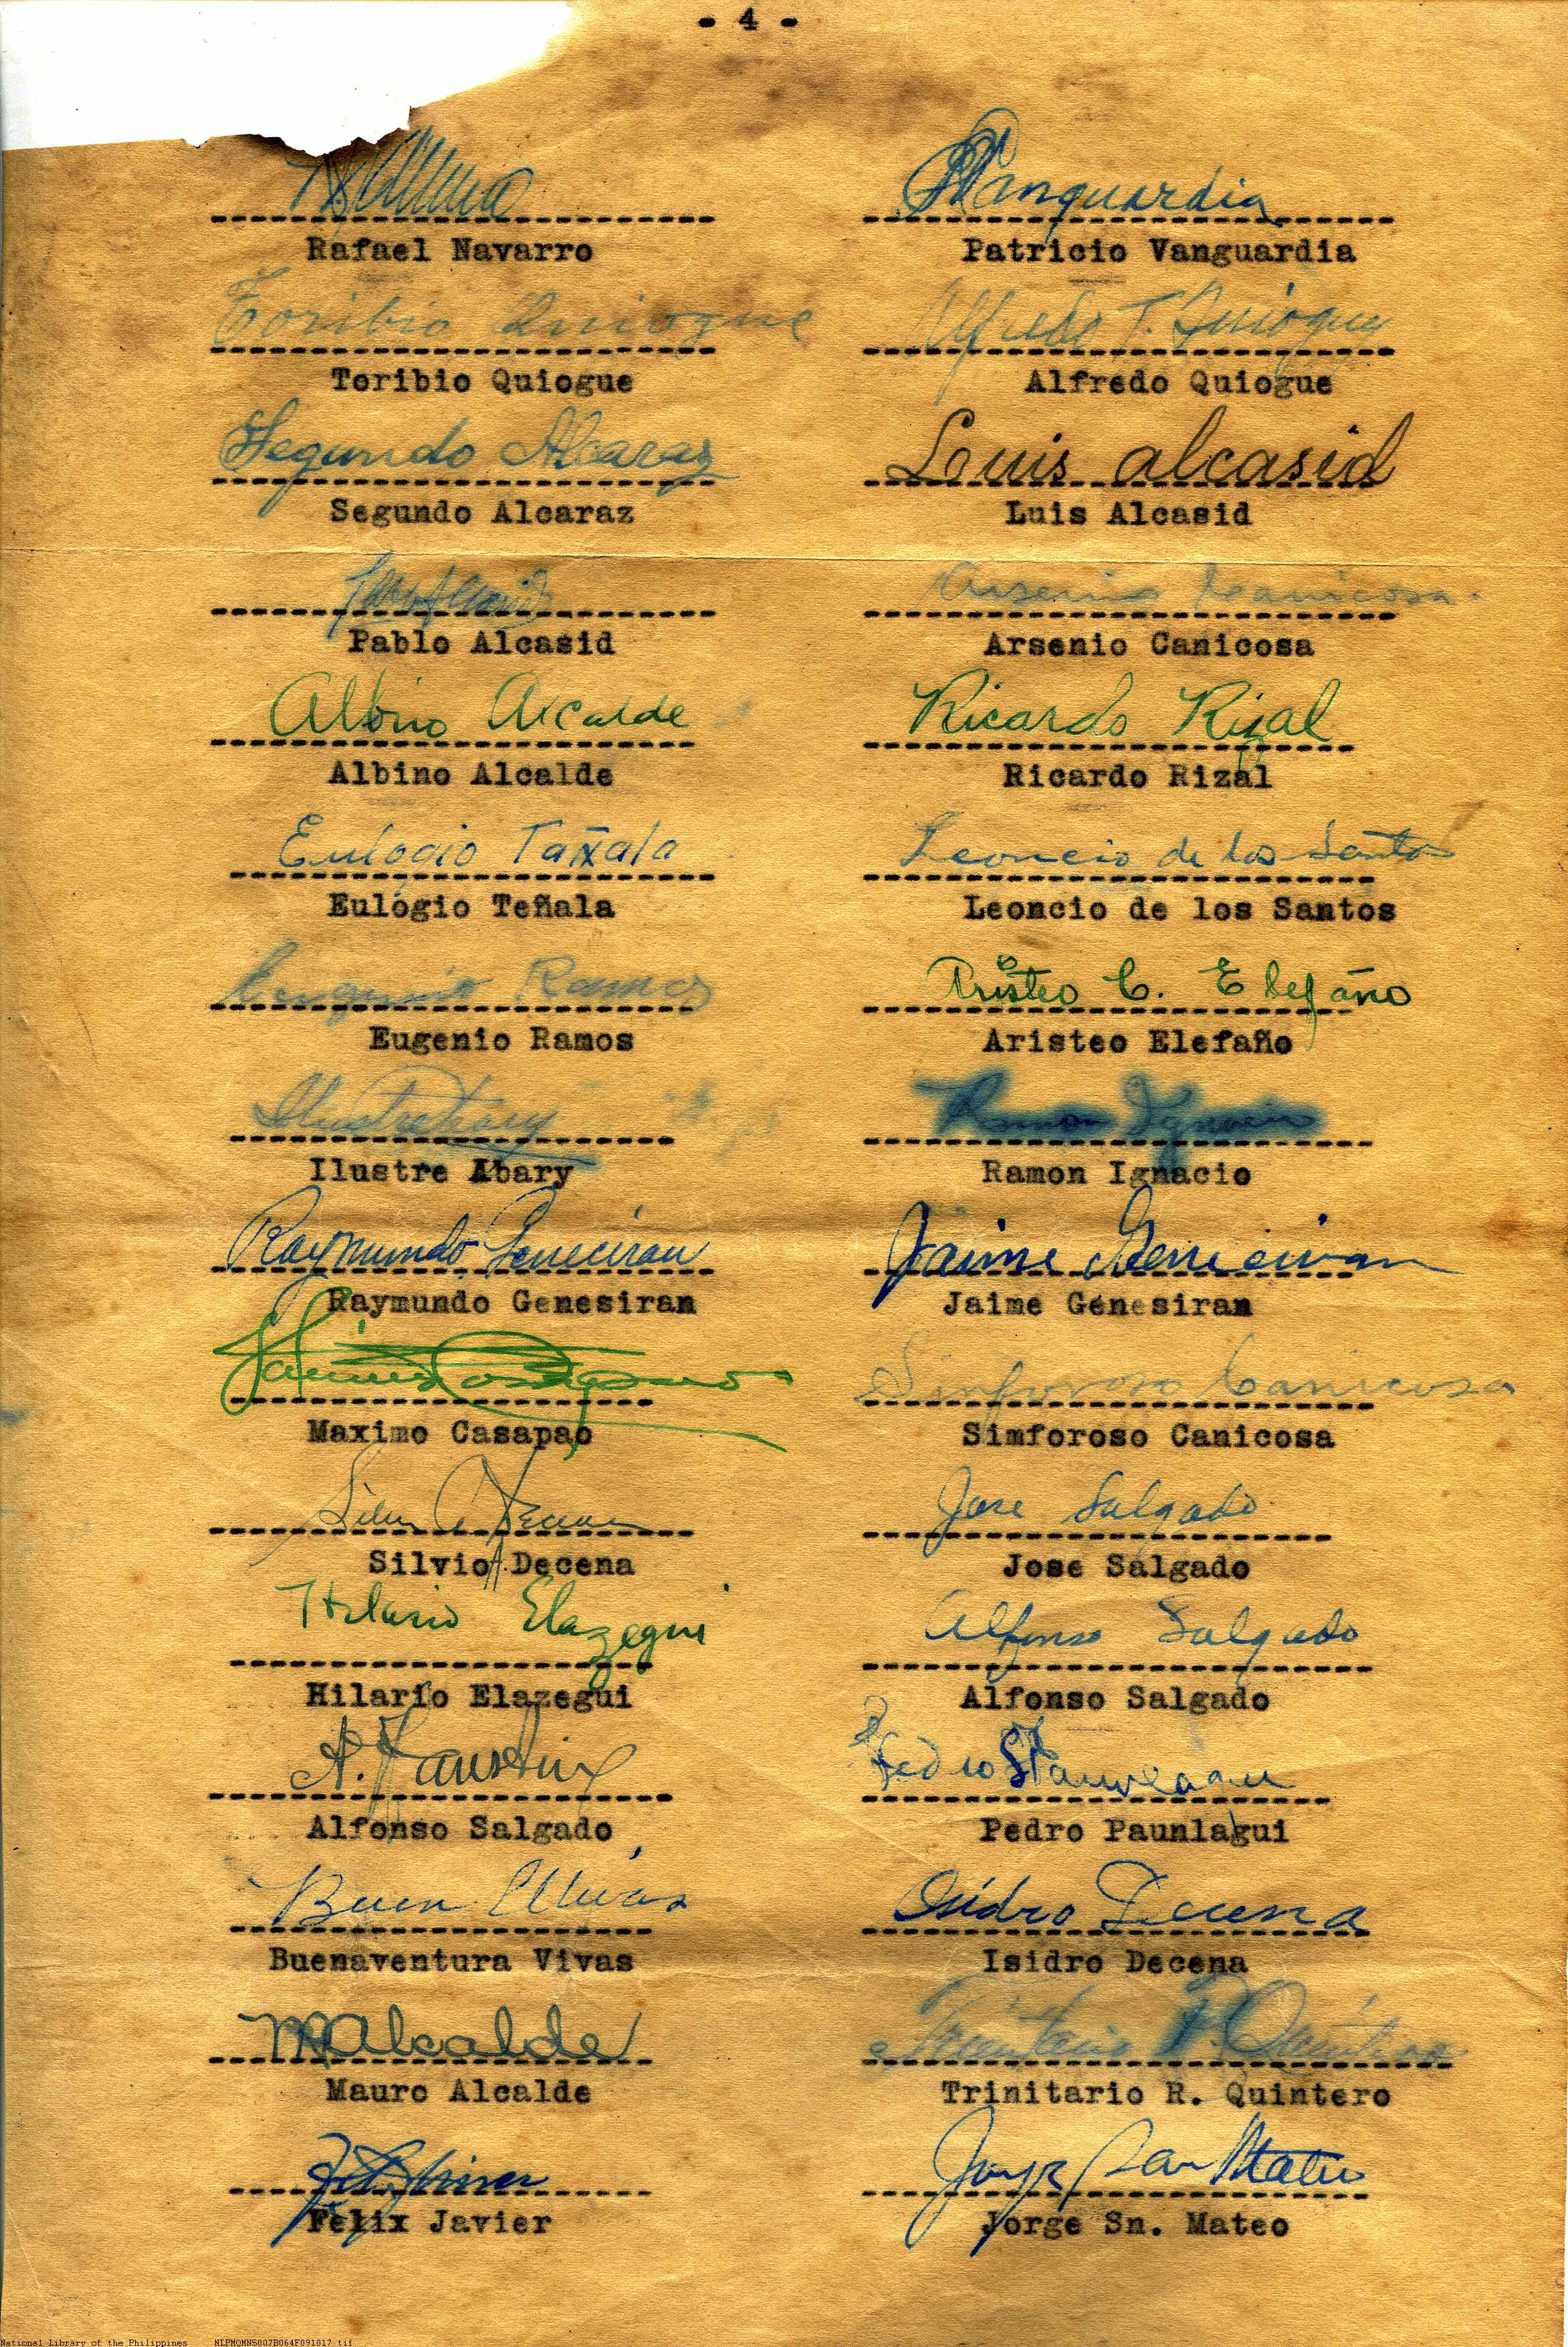 - 4 -
Vanguardia
Rafael Navarro Patricio Vanguardia
Toribio Quiogue Alfredo T. Quiogue
Toribio Quiogue Alfredo Quiogue
Segundo Alcaraz Louis alcasid
Segundo Alcaraz Luis Alcasid
Arsenio Canicosa
Pablo Alcasid Arsenio Canicosa
Albino Alcalde Ricardo Rizal
Albino Alcalde Ricardo Rizal
Eulogio Tañala Leoncio de los Santos
Eulogio Teñala Leoncio de los Santos
Eugenio Ramos Aristeo C. Elefaño
Eugenio Ramos Aristeo Elefaño
Ramon Ignacio
Ilustre Abary Ramon Ignacio
Raymundo Geneciran Jaime Geneciran
Raymundo Genesiran Jaime Genesiran
Simforoso Canicosa
Maximo Casapao Simforoso Canicosa
Jose Salgado
Silvio A. Decena Jose Salgado
Hilario Elazegui Alfonso Salgado
Hilario Elazegui Alfonso Salgado
A. Faustino Pedro
Alfonso Salgado Pedro Paunlagui
Buen Vivas Isidro Decena
Buenaventura Vivas Isidro Decena
M Alcalde Trinitario R. Quintero
Mauro Alcalde Trinitario R. Quintero
Jorge San Mateo
Felix Javier Jorge Sn. Mateo
National Library of the Philippines NLPMQMNS007B064F091017.tif